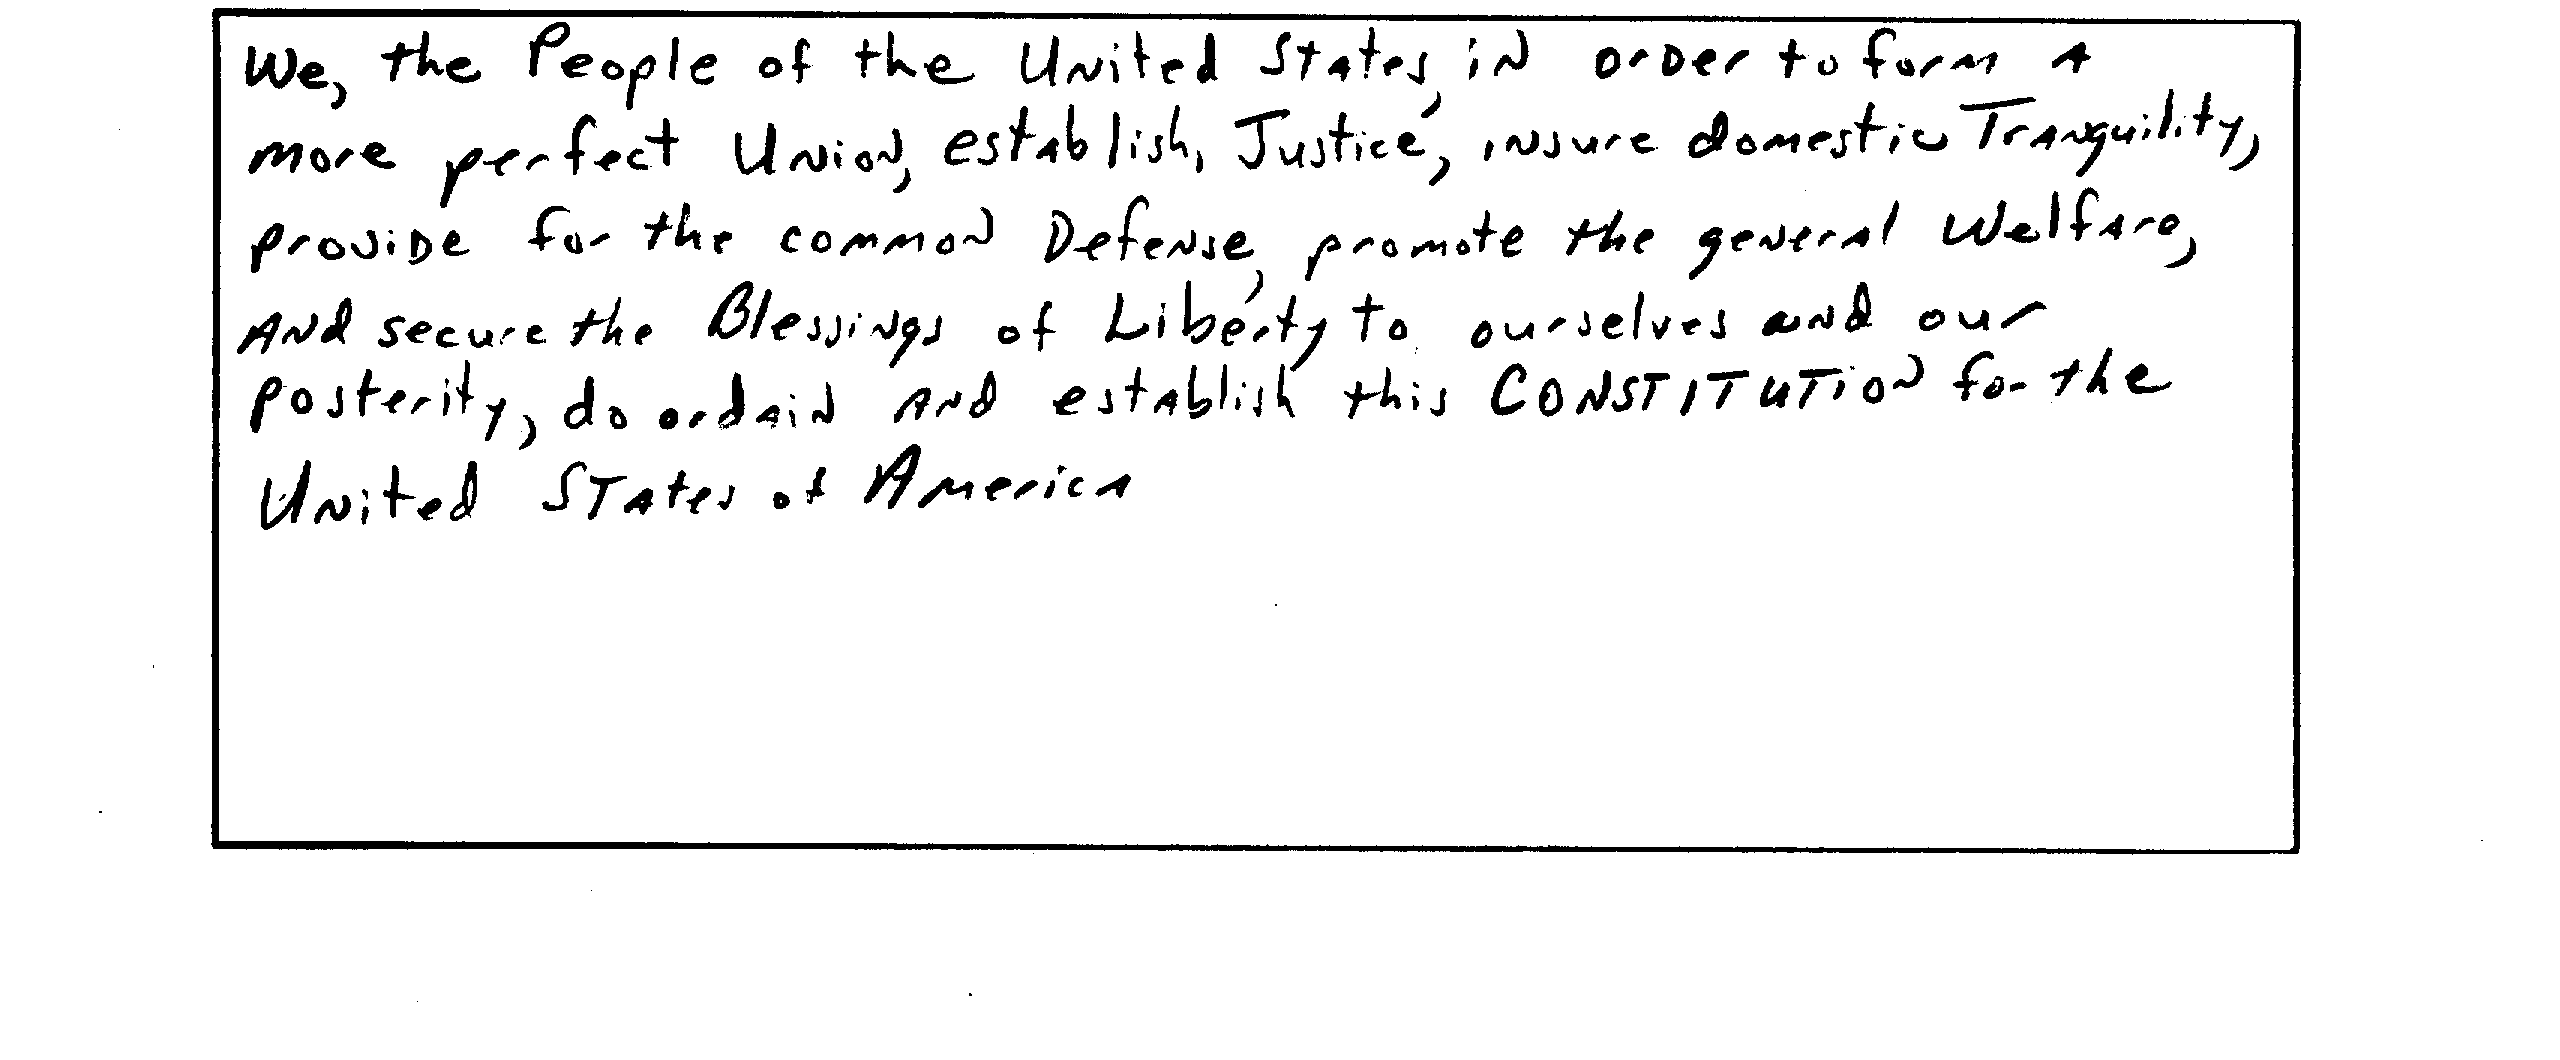 We, the People of the United States, in order to form a
more perfect Union, establish, Justice, insure domestic Tranquility,
provide for the common Defense, promote the general Welfare,
and secure the Blessings of Liberty to ourselves and our
posterity, do ordain and establish this CONSTITUTION for the
United States of America